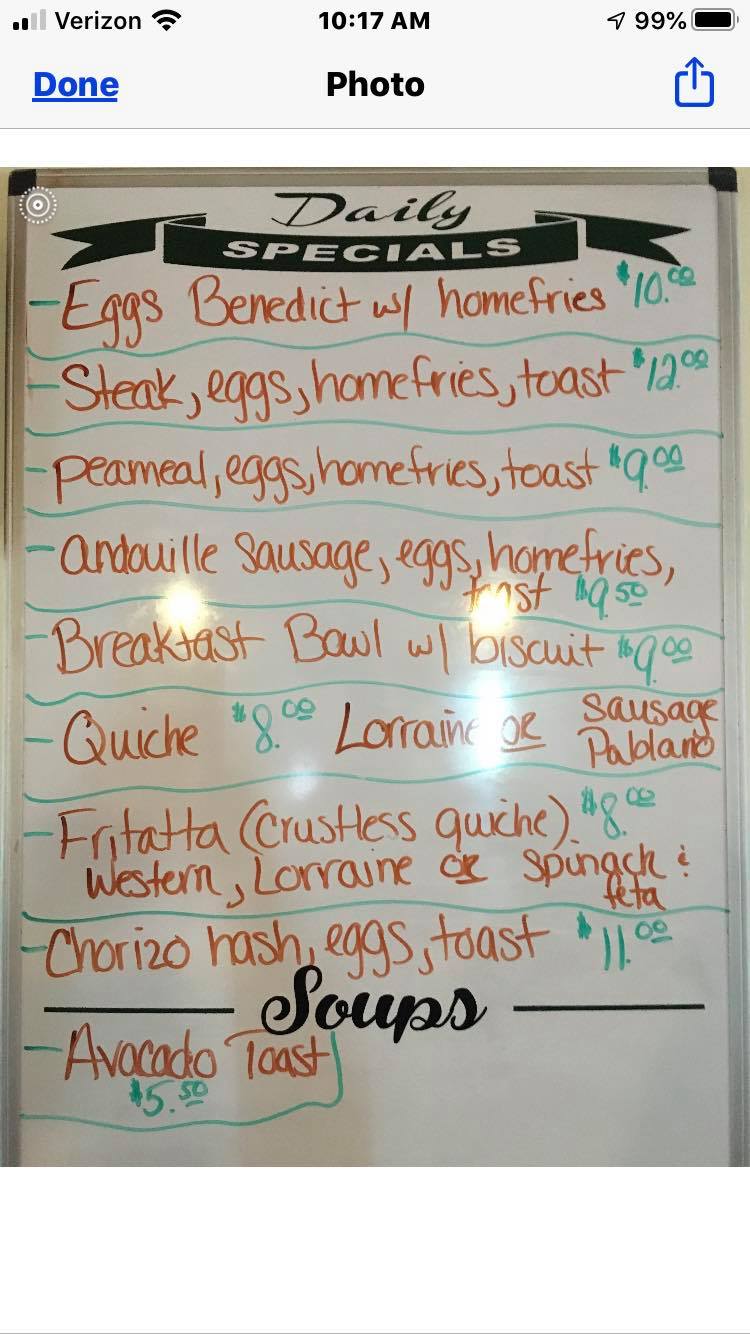 Verizon 10:17 AM 99%
Done Photo
Daily
SPECIALS
- Eggs Benedict w/ homefries $10.00
- Steak, eggs, homefries, toast $12.00
- peameal, eggs, homefries, toast $9.00
- andouille Sausage, eggs, homefries,
toast $9.50
- Breakfast Bowl w/ biscuit $9.00
- Quiche $8.00 Lorraine OR Sausage
Pablano
- Fritatta (crustless quiche) $8.00
Western, Lorraine OR spinach &
feta
- Chorizo hash, eggs, toast $11.00
Soups
- Avocado Toast
$5.50